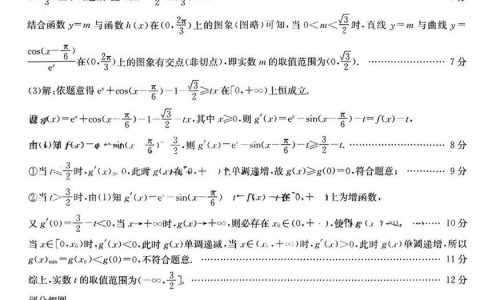 结合函数 y=m 与函数 h(x)在(0, 2π/3)上的图象(图略)可知,当 0<m<√3/2 时,直线 y=m 与曲线 y=
cos(x-π/6)/eˣ 在(0, 2π/3)上的图象有交点(非切点),即实数 m 的取值范围为(0, √3/2). …… 7 分
(3)解:依题意得 eˣ+cos(x-π/6)-1-√3/2≥tx 在[0,+∞)上恒成立.
设 g(x)=eˣ+cos(x-π/6)-1-√3/2-tx,其中 x≥0,则 g′(x)=eˣ-sin(x-π/6)-t=f(x)-t,
由(1)知 f(x) 3/2,则 g′(x)=eˣ-sin(x-π/6)-t≥3/2-t. …… 8 分
①当 t≤3/2时,g′(x)≥0,此时 g(x)在 0,+ )上单调递增,故 g(x)≥g(0)=0,符合题意; …… 9 分
②当 t>3/2时,由(1)知 g′(x)=eˣ-sin(x-π/6)-t=f(x)-t在 0,+ )上为增函数,
又 g′(0)=3/2-t<0,当 x→+∞时,g(x)→+∞,则必存在 x₀∈(0,+ ),使得 …… 10 分
当 x∈[0,x₀)时,g′(x)<0,此时 g(x)单调递减,当 x∈(x₀,+∞)时,g′(x)>0,此时 g(x)单调递增,所以
g(x)min=g(x₀)<g(0)=0,不符合题意. …… 11 分
综上,实数 t 的取值范围为(-∞, 3/2]. …… 12 分